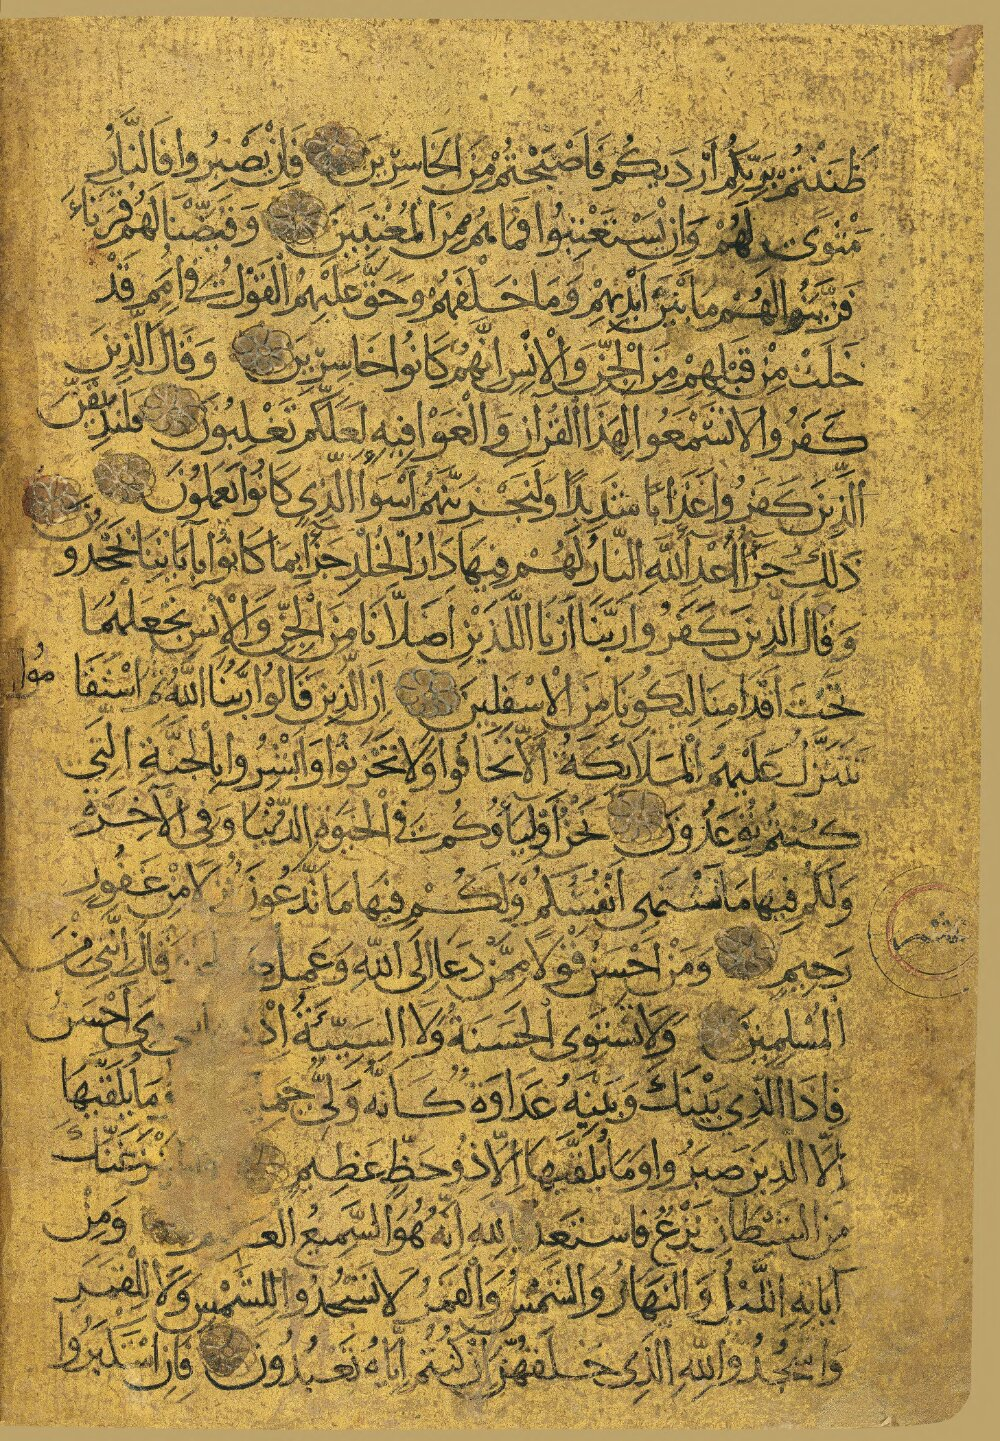 ظَنَنْتُمْ بِرَبِّكُمْ أَرْدَيكُمْ فَأَصْبَحْتُمْ مِنَ الْخَاسِرِينَ فَإِنْ يَصْبِرُوا فَالنَّارُ
مَثْوًى لَهُمْ وَإِنْ يَسْتَعْتِبُوا فَمَا هُمْ مِنَ الْمُعْتَبِينَ وَقَيَّضْنَا لَهُمْ قُرَنَاءَ
فَزَيَّنُوا لَهُمْ مَا بَيْنَ أَيْدِيهِمْ وَمَا خَلْفَهُمْ وَحَقَّ عَلَيْهِمُ الْقَوْلُ فِي أُمَمٍ قَدْ
خَلَتْ مِنْ قَبْلِهِمْ مِنَ الْجِنِّ وَالْإِنْسِ إِنَّهُمْ كَانُوا خَاسِرِينَ وَقَالَ الَّذِينَ
كَفَرُوا لَا تَسْمَعُوا لِهَذَا الْقُرْآنِ وَالْغَوْا فِيهِ لَعَلَّكُمْ تَغْلِبُونَ فَلَنُذِيقَنَّ
الَّذِينَ كَفَرُوا عَذَابًا شَدِيدًا وَلَنَجْزِيَنَّهُمْ أَسْوَأَ الَّذِي كَانُوا يَعْمَلُونَ
ذَلِكَ جَزَاءُ أَعْدَاءِ اللَّهِ النَّارُ لَهُمْ فِيهَا دَارُ الْخُلْدِ جَزَاءً بِمَا كَانُوا بِآيَاتِنَا يَجْحَدُونَ
وَقَالَ الَّذِينَ كَفَرُوا رَبَّنَا أَرِنَا اللَّذَيْنِ أَضَلَّانَا مِنَ الْجِنِّ وَالْإِنْسِ نَجْعَلْهُمَا
تَحْتَ أَقْدَامِنَا لِيَكُونَا مِنَ الْأَسْفَلِينَ إِنَّ الَّذِينَ قَالُوا رَبُّنَا اللَّهُ ثُمَّ اسْتَقَامُوا
تَتَنَزَّلُ عَلَيْهِمُ الْمَلَائِكَةُ أَلَّا تَخَافُوا وَلَا تَحْزَنُوا وَأَبْشِرُوا بِالْجَنَّةِ الَّتِي
كُنْتُمْ تُوعَدُونَ نَحْنُ أَوْلِيَاؤُكُمْ فِي الْحَيَوةِ الدُّنْيَا وَفِي الْآخِرَةِ
وَلَكُمْ فِيهَا مَا تَشْتَهِي أَنْفُسُكُمْ وَلَكُمْ فِيهَا مَا تَدَّعُونَ نُزُلًا مِنْ غَفُورٍ
رَحِيمٍ وَمَنْ أَحْسَنُ قَوْلًا مِمَّنْ دَعَا إِلَى اللَّهِ وَعَمِلَ وَقَالَ إِنَّنِي مِنَ
الْمُسْلِمِينَ وَلَا تَسْتَوِي الْحَسَنَةُ وَلَا السَّيِّئَةُ أَحْسَنُ
فَإِذَا الَّذِي بَيْنَكَ وَبَيْنَهُ عَدَاوَةٌ كَأَنَّهُ وَلِيٌّ حَمِيمٌ وَمَا يُلَقَّيهَا
إِلَّا الَّذِينَ صَبَرُوا وَمَا يُلَقَّيهَا إِلَّا ذُو حَظٍّ عَظِيمٍ يَنْزَغَنَّكَ
مِنَ الشَّيْطَانِ نَزْغٌ فَاسْتَعِذْ بِاللَّهِ إِنَّهُ هُوَ السَّمِيعُ الْعَلِيمُ وَمِنْ
آيَاتِهِ اللَّيْلُ وَالنَّهَارُ وَالشَّمْسُ وَالْقَمَرُ لَا تَسْجُدُوا لِلشَّمْسِ وَلَا لِلْقَمَرِ
وَاسْجُدُوا لِلَّهِ الَّذِي خَلَقَهُنَّ إِنْ كُنْتُمْ إِيَّاهُ تَعْبُدُونَ فَإِنِ اسْتَكْبَرُوا